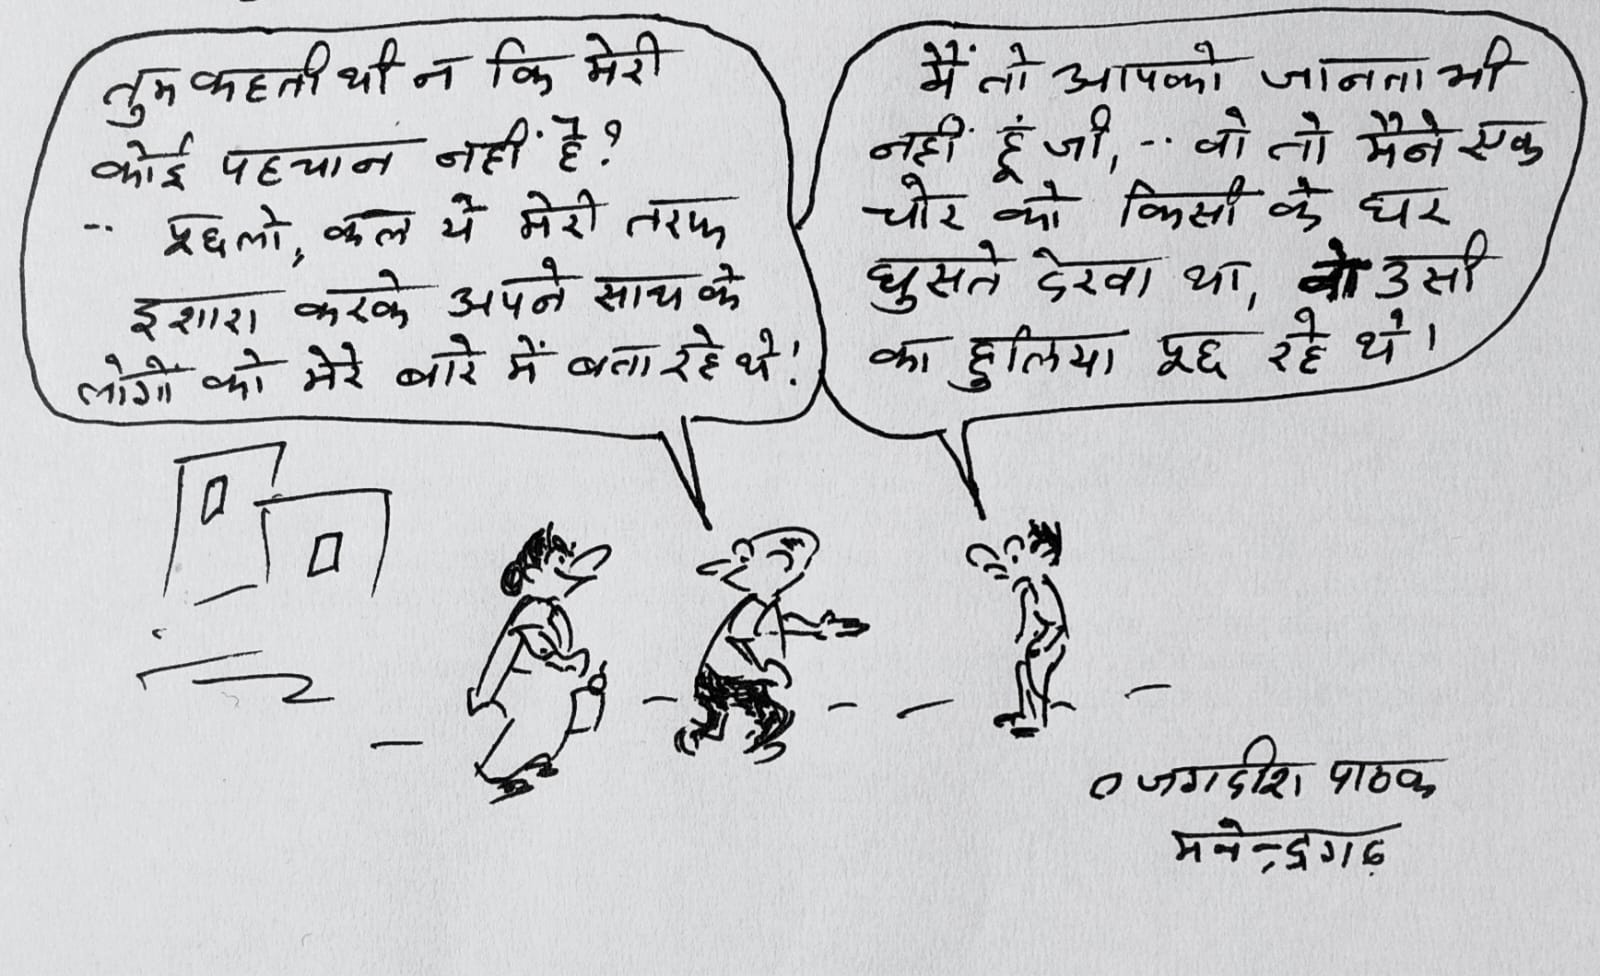 तुम कहती थी न कि मेरी
कोई पहचान नहीं है?
-- पूछलो, कल ये मेरी तरफ
इशारा करके अपने साथ के
लोगों को मेरे बारे में बता रहे थे!
मैं तो आपको जानता भी
नहीं हूं जी, -- वो तो मैंने एक
चोर को किसी के घर
घुसते देखा था, वो उसी
का हुलिया पूछ रहे थे।
० जगदीश पाठक
मनेन्द्रगढ़